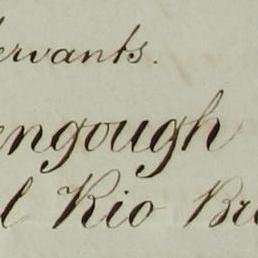 ervants.
engough
l Rio Bra